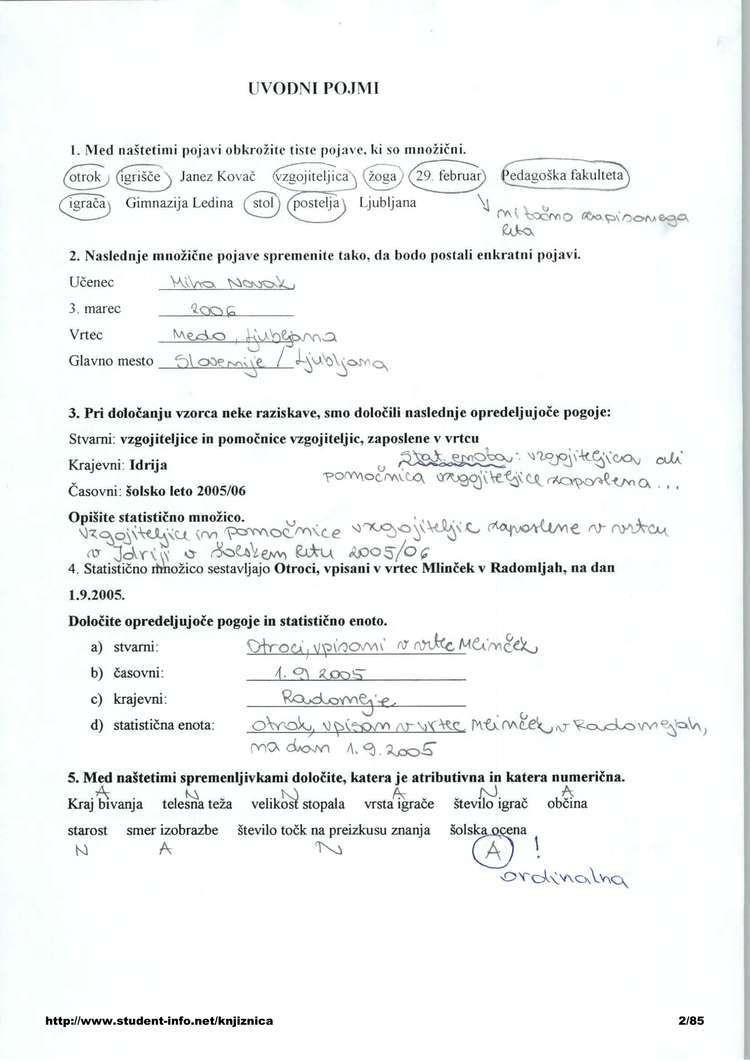 UVODNI POJMI
1. Med naštetimi pojavi obkrožite tiste pojave, ki so množični.
otrok igrišče Janez Kovač vzgojiteljica žoga 29. februar Pedagoška fakulteta
igrača Gimnazija Ledina stol postelja Ljubljana
ni točno zapisanega
leta
2. Naslednje množične pojave spremenite tako, da bodo postali enkratni pojavi.
Učenec Miha Novak
3. marec 2006
Vrtec Medo, Ljubljana
Glavno mesto Slovenije / Ljubljana
3. Pri določanju vzorca neke raziskave, smo določili naslednje opredeljujoče pogoje:
Stvarni: vzgojiteljice in pomočnice vzgojiteljic, zaposlene v vrtcu
Krajevni: Idrija
Stat. enota: vzgojiteljica ali
pomočnica vzgojiteljice zaposlena ...
Časovni: šolsko leto 2005/06
Opišite statistično množico.
Vzgojiteljice in pomočnice vzgojiteljic zaposlene v vrtcu
v Idriji v šolskem letu 2005/06
4. Statistično množico sestavljajo Otroci, vpisani v vrtec Mlinček v Radomljah, na dan
1.9.2005.
Določite opredeljujoče pogoje in statistično enoto.
a) stvarni: Otroci, vpisani v vrtec Mlinček
b) časovni: 1. 9 2005
c) krajevni: Radomlje
d) statistična enota: otrok, vpisan v vrtec Mlinček, v Radomljah,
na dan 1.9.2005
5. Med naštetimi spremenljivkami določite, katera je atributivna in katera numerična.
A N N A N A
Kraj bivanja telesna teža velikost stopala vrsta igrače število igrač občina
starost smer izobrazbe število točk na preizkusu znanja šolska ocena
N A N A !
ordinalna
http://www.student-info.net/knjiznica 2/85